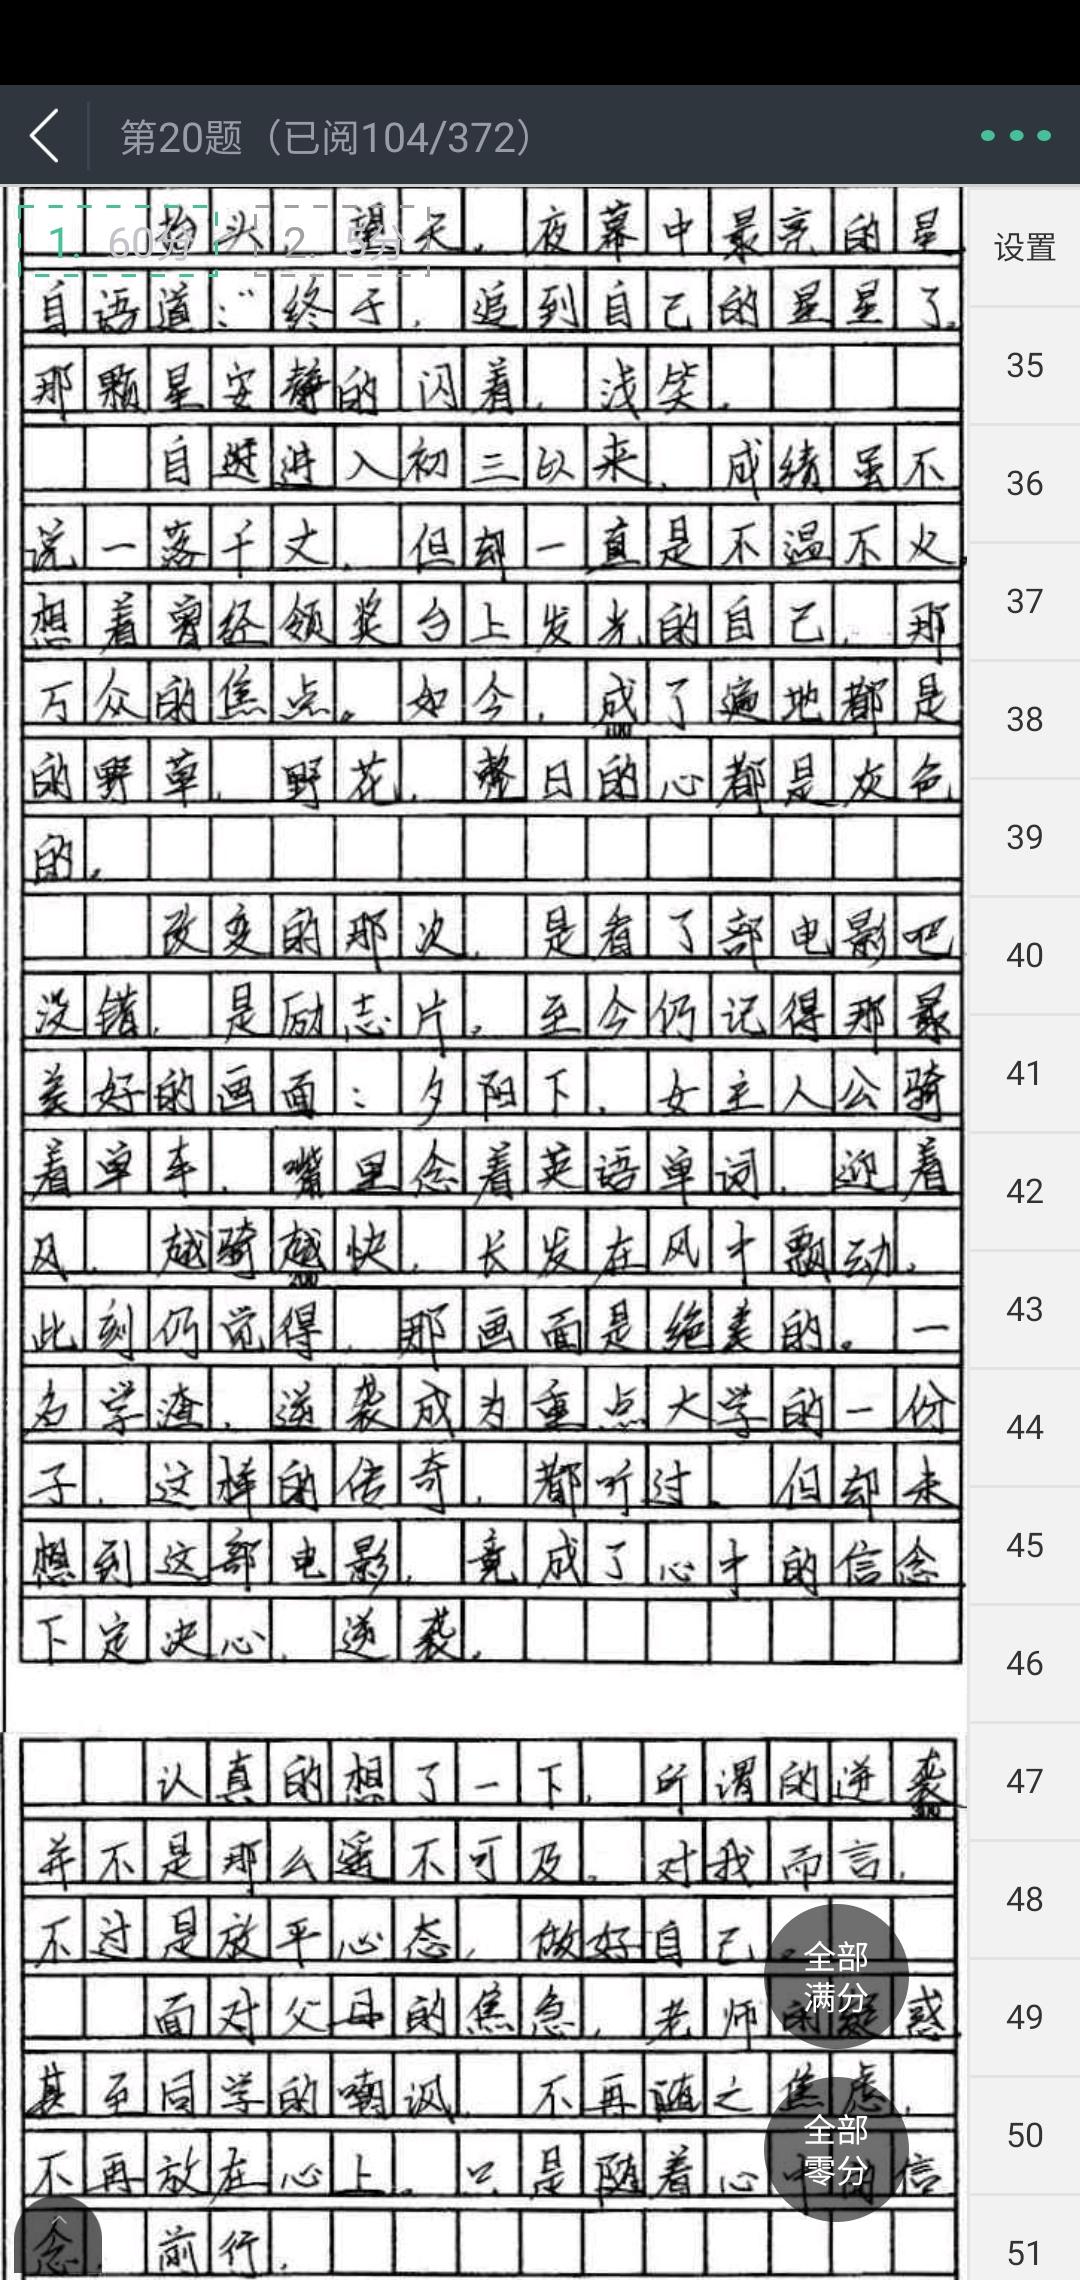 第20题（已阅104/372）
1. 60分 2. 5分
抬头望天。夜幕中最亮的星。
自语道：“终于，追到自己的星星了。
那颗星安静的闪着，浅笑。
自进入初三以来，成绩虽不
说一落千丈，但却一直是不温不火，
想着曾经领奖台上发光的自己，那
万众的焦点。如今，成了遍地都是
100
的野草，野花，整日的心都是灰色
的。
改变的那次，是看了部电影吧，
没错，是励志片。至今仍记得那最
美好的画面：夕阳下，女主人公骑
着单车，嘴里念着英语单词，迎着
风，越骑越快，长发在风中飘动。
200
此刻仍觉得，那画面是绝美的。一
名学渣，逆袭成为重点大学的一份
子，这样的传奇，都听过。但却未
想到这部电影，竟成了心中的信念
下定决心，逆袭。
认真的想了一下，所谓的逆袭
300
并不是那么遥不可及。对我而言，
不过是放平心态，做好自己。
面对父母的焦急，老师的疑惑，
甚至同学的嘲讽，不再随之焦虑，
不再放在心上。只是随着心中的信
念，前行。
设置
35
36
37
38
39
40
41
42
43
44
45
46
47
48
49
50
51
全部
满分
全部
零分